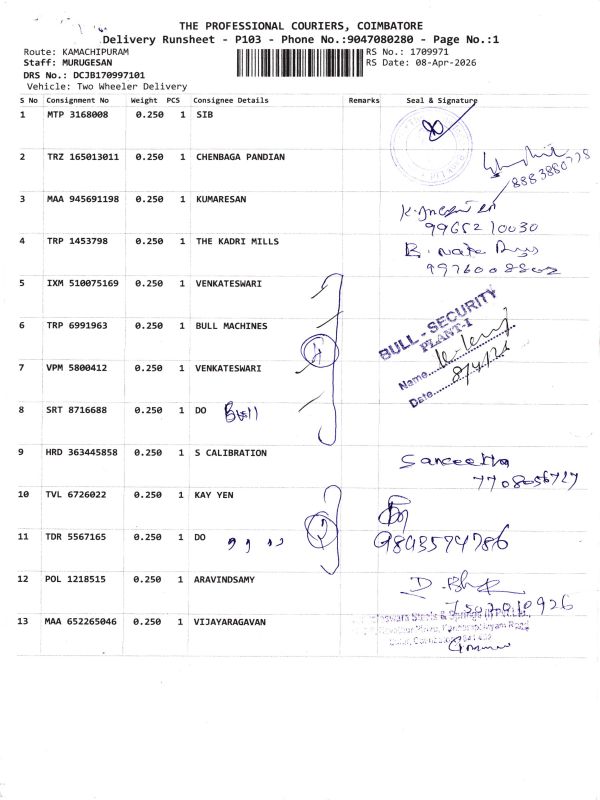 THE PROFESSIONAL COURIERS, COIMBATORE
Delivery Runsheet - P103 - Phone No.:9047080280 - Page No.:1
Route: KAMACHIPURAM RS No.: 1709971
Staff: MURUGESAN RS Date: 08-Apr-2026
DRS No.: DCJB170997101
Vehicle: Two Wheeler Delivery
S No Consignment No Weight PCS Consignee Details Remarks Seal & Signature
1 MTP 3168008 0.250 1 SIB
2 TRZ 165013011 0.250 1 CHENBAGA PANDIAN
3 MAA 945691198 0.250 1 KUMARESAN
9965210030
4 TRP 1453798 0.250 1 THE KADRI MILLS
5 IXM 510075169 0.250 1 VENKATESWARI
6 TRP 6991963 0.250 1 BULL MACHINES
BULL - SECURITY
PLANT-I
7 VPM 5800412 0.250 1 VENKATESWARI
Name
Date 8/4/26
8 SRT 8716688 0.250 1 DO Bull
9 HRD 363445858 0.250 1 S CALIBRATION
Sangeetha
7708056727
10 TVL 6726022 0.250 1 KAY YEN
11 TDR 5567165 0.250 1 DO
9843574786
12 POL 1218515 0.250 1 ARAVINDSAMY
13 MAA 652265046 0.250 1 VIJAYARAGAVAN